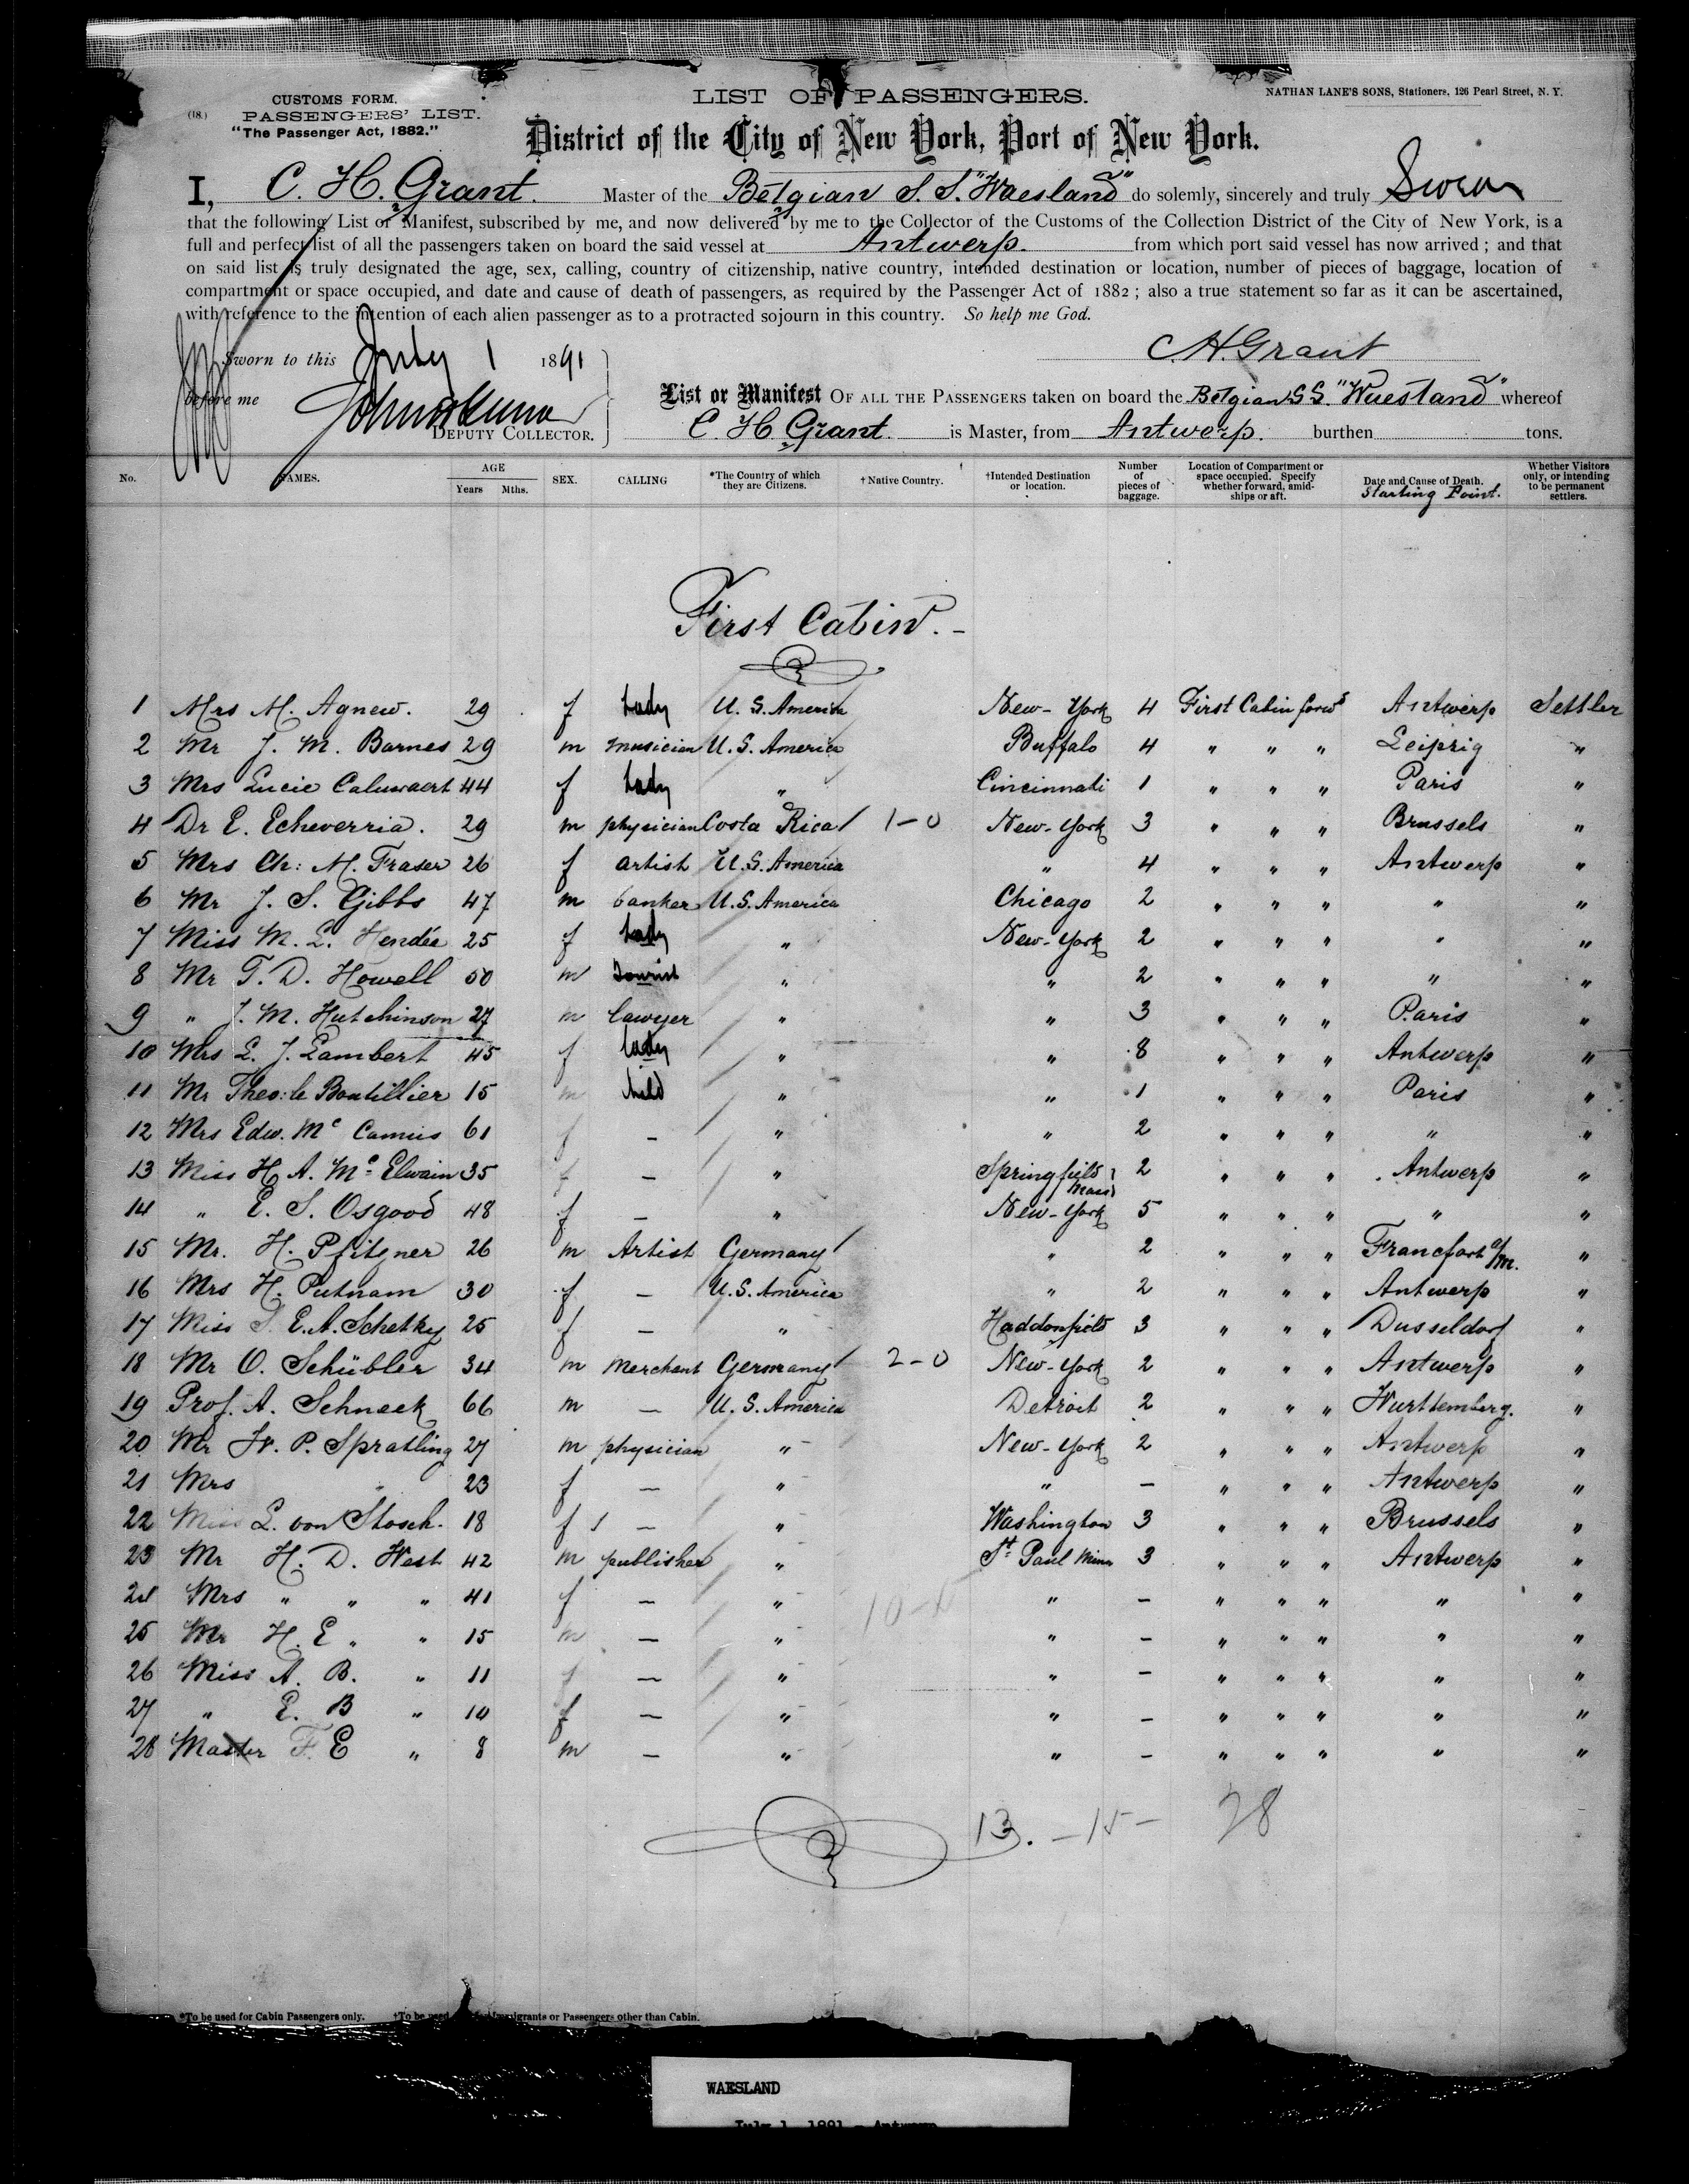 CUSTOMS FORM.
(18.) PASSENGERS' LIST.
"The Passenger Act, 1882."
LIST OF PASSENGERS.
NATHAN LANE'S SONS, Stationers, 126 Pearl Street, N. Y.
District of the City of New York, Port of New York.
I, C. H. Grant. Master of the Belgian S. S. "Waesland" do solemnly, sincerely and truly Swear
that the following List or Manifest, subscribed by me, and now delivered by me to the Collector of the Customs of the Collection District of the City of New York, is a
full and perfect list of all the passengers taken on board the said vessel at Antwerp. from which port said vessel has now arrived; and that
on said list is truly designated the age, sex, calling, country of citizenship, native country, intended destination or location, number of pieces of baggage, location of
compartment or space occupied, and date and cause of death of passengers, as required by the Passenger Act of 1882; also a true statement so far as it can be ascertained,
with reference to the intention of each alien passenger as to a protracted sojourn in this country. So help me God.
C. H. Grant
Sworn to this July 1 1891
before me
DEPUTY COLLECTOR.
List or Manifest OF ALL THE PASSENGERS taken on board the Belgian S.S. "Waesland" whereof
C. H. Grant. is Master, from Antwerp. burthen tons.
No. NAMES. AGE Years Mths. SEX. CALLING *The Country of which they are Citizens. †Native Country. †Intended Destination or location. Number of pieces of baggage. Location of Compartment or space occupied. Specify whether forward, amidships or aft. Date and Cause of Death. Starting Point. Whether Visitors only, or intending to be permanent settlers.
First Cabin. -
1 Mrs M. Agnew. 29 f Lady U. S. America New-York 4 First Cabin forwd Antwerp Settler
2 Mr J. M. Barnes 29 m musician U. S. America Buffalo 4 " " " Leipzig "
3 Mrs Lucie Caluwaert 44 f Lady " Cincinnati 1 " " " Paris "
4 Dr E. Echeverria. 29 m physician Costa Rica / 1-0 New-York 3 " " " Brussels "
5 Mrs Ch: M. Fraser 26 f artist U. S. America " 4 " " " Antwerp "
6 Mr J. S. Gibbs 47 m banker U. S. America Chicago 2 " " " " "
7 Miss M. E. Hendée 25 f Lady " New-York 2 " " " " "
8 Mr T. D. Howell 50 m tourist " " 2 " " " " "
9 " J. M. Hutchinson 27 m lawyer " " 3 " " " Paris "
10 Mrs E. J. Lambert 45 f lady " " 8 " " " Antwerp "
11 Mr Theo: le Boutillier 15 m child " " 1 " " " Paris "
12 Mrs Edw. Mc Camus 61 f - " " 2 " " " " "
13 Miss H. A. Mc Elwain 35 f - " Springfield Mass 2 " " " Antwerp "
14 " E. S. Osgood 48 f - " New-York 5 " " " " "
15 Mr. H. Pfitzner 26 m Artist Germany / " 2 " " " Francfort a/m. "
16 Mrs H. Putnam 30 f - U. S. America " 2 " " " Antwerp "
17 Miss S. E. A. Schetky 25 f - " Haddonfield 3 " " " Dusseldorf "
18 Mr O. Schübler 34 m Merchant Germany / 2-0 New-York 2 " " " Antwerp "
19 Prof. A. Schneck 66 m - U. S. America Detroit 2 " " " Wurttemberg. "
20 Mr W. P. Spratling 27 m physician " New-York 2 " " " Antwerp "
21 Mrs " 23 f - " " - " " " Antwerp "
22 Miss L. von Stosch. 18 f / - " Washington 3 " " " Brussels "
23 Mr H. D. West 42 m publisher " St Paul Minn 3 " " " Antwerp "
24 Mrs " " " 41 f - " " - " " " " "
25 Mr H. E " " 15 m - " " - " " " " "
26 Miss A. B. " 11 f - " " - " " " " "
27 " E. B " 10 f - " " - " " " " "
28 Master F. E " 8 m - " " - " " " " "
13. - 15 - 28
*To be used for Cabin Passengers only. †To be used Immigrants or Passengers other than Cabin.
WAESLAND
July 1, 1891 - Antwerp